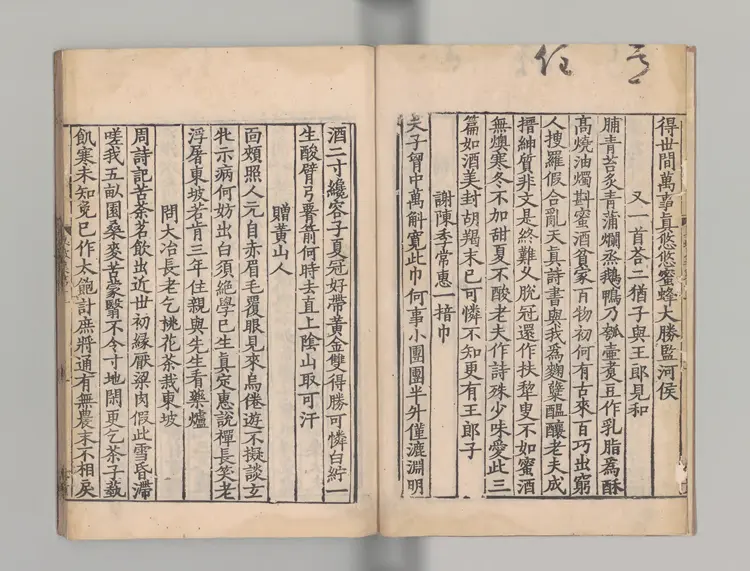 得世間萬事真悠悠蜜蜂大勝監河侯
又一首荅二猶子與王郎見和
脯青苔炙青蒲爛蒸鵝鴨乃瓠壷煑豆作乳脂為酥
高燒油燭斟蜜酒貧家百物初何有古來百巧出窮
人搜羅假合亂天真詩書與我為麴蘖醖釀老夫成
搢紳質非文是終難乂脫冠還作扶犂叟不如蜜酒
無燠寒冬不加甜夏不酸老夫作詩殊少味愛此三
篇如酒美封胡羯末已可憐不知更有王郎子
謝陳季常惠一揞巾
夫子胷中萬斛寛此巾何事小團團半外僅漉淵明
酒二寸纔容子夏冠好帶黃金雙得勝可憐白紵一
生酸臂弓䙴箭何時去直上陰山取可汗
贈黃山人
面頰照人元自赤眉毛覆眼見來烏倦遊不擬談玄
牝示病何妨出白須絶學已生真定惠說禪長笑老
浮屠東坡若肯三年住親與先生看藥爐
問大冶長老乞桃花茶栽東坡
周詩記苦荼茗飲出近世初緣厭粱肉假此雪昏滯
嗟我五畝園桑麥苦蒙翳不令寸地閑更乞茶子蓺
飢寒未知免已作太飽計庶將通有無農末不相戾